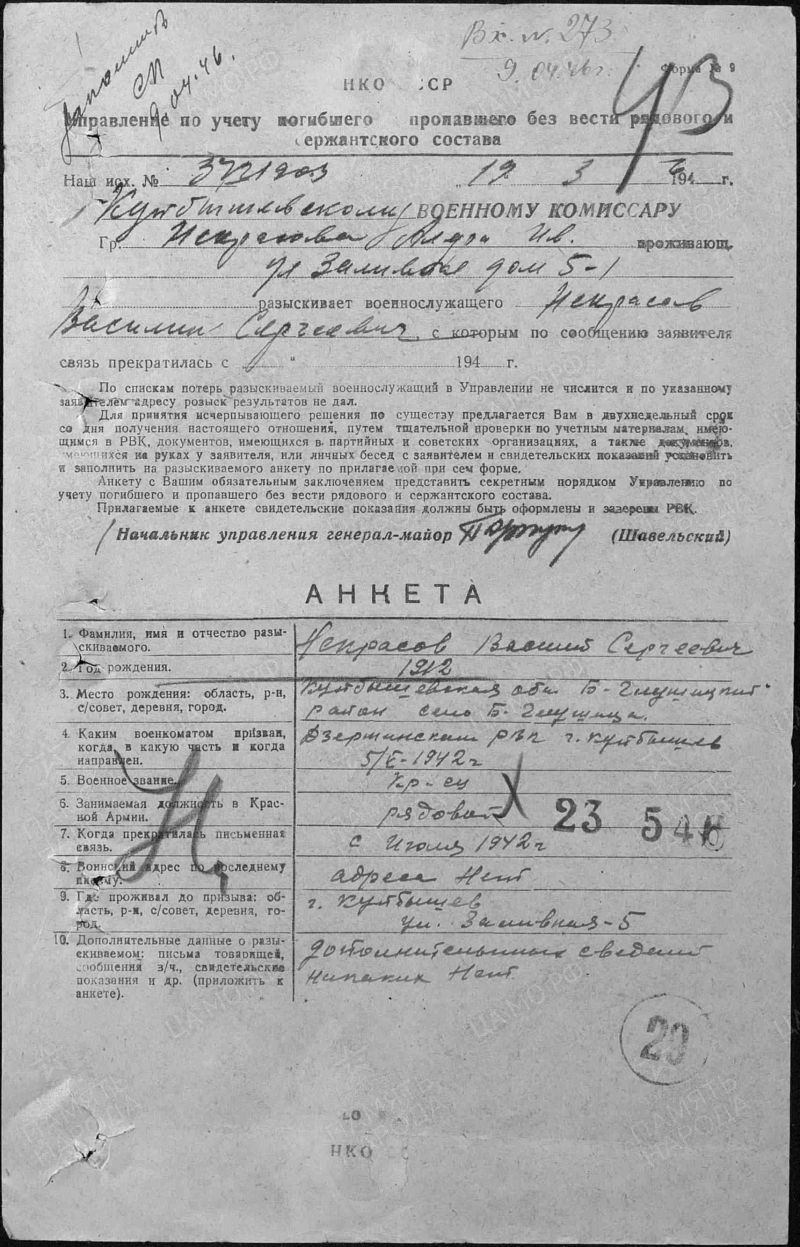 Вх. N. 273
9.04.46г.
9.04.46.
Форма № 9
НКО СССР
Управление по учету погибшего пропавшего без вести рядового и
сержантского состава
Наш исх. № 3721903 "19" 3 1946 г.
Куйбышевскому ВОЕННОМУ КОМИССАРУ
Гр. Некрасова Ив. проживающ.
ул Заливная дом 5-1
разыскивает военнослужащего Некрасов
Василий Сергеевич, с которым по сообщению заявителя
связь прекратилась с " 194 г.
По спискам потерь разыскиваемый военнослужащий в Управлении не числится и по указанному
заявителем адресу розыск результатов не дал.
Для принятия исчерпывающего решения по существу предлагается Вам в двухнедельный срок
со дня получения настоящего отношения, путем тщательной проверки по учетным материалам, имею-
щимся в РВК, документов, имеющихся в партийных и советских организациях, а также документов,
имеющихся на руках у заявителя, или личных бесед с заявителем и свидетельских показаний установить
и заполнить на разыскиваемого анкету по прилагаемой при сем форме.
Анкету с Вашим обязательным заключением представить секретным порядком Управлению по
учету погибшего и пропавшего без вести рядового и сержантского состава.
Прилагаемые к анкете свидетельские показания должны быть оформлены и заверены РВК.
Начальник управления генерал-майор (Шавельский)
АНКЕТА
1. Фамилия, имя и отчество разы-
скиваемого.
Некрасов Василий Сергеевич
2. Год рождения.
1912
3. Место рождения: область, р-н,
с/совет, деревня, город.
Куйбышевская обл. Б-Глушицкий
район село Б-Глушица.
4. Каким военкоматом призван,
когда, в какую часть и когда
направлен.
Дзержинским РВК г. Куйбышев
5/V-1942г
5. Военное звание.
Кр-ец
6. Занимаемая должность в Крас-
ной Армии.
рядовой
23 54
7. Когда прекратилась письменная
связь.
с Июля 1942г
8. Воинский адрес по последнему
письму.
адреса Нет
9. Где проживал до призыва: об-
ласть, р-н, с/совет, деревня, го-
род.
г. Куйбышев
ул. Заливная-5
10. Дополнительные данные о разы-
скиваемом: письма товарищей,
сообщения в/ч., свидетельские
показания и др. (приложить к
анкете).
дополнительных сведений
никаких Нет.
29
НКО